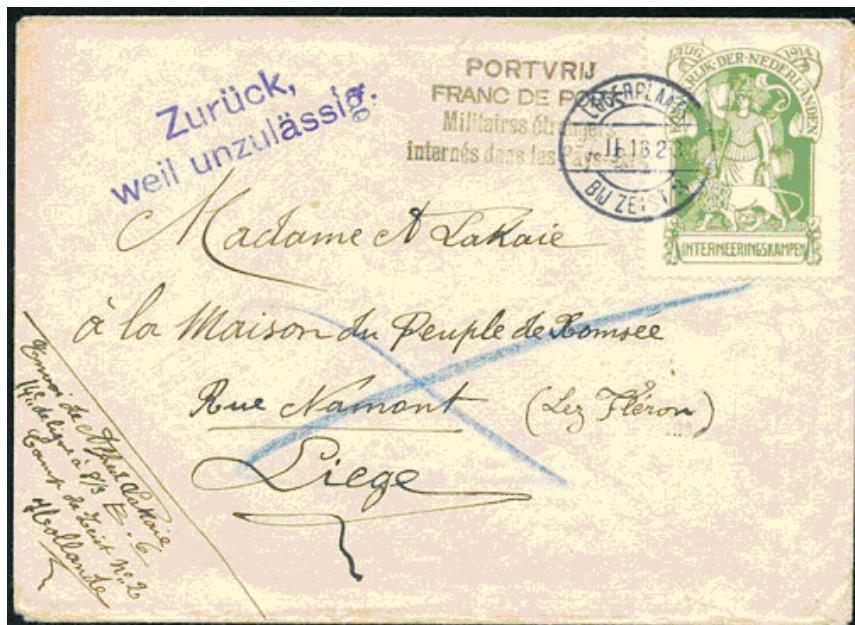 Zurück,
weil unzulässig.
PORTVRIJ
FRANC DE PO
Militaires étrangers
internés dans les Pays-Bas
LEGERPLAATS
11.16.2
BIJ ZEIST
AUG 1914
RIJK·DER·NEDERLANDEN
INTERNEERINGSKAMPEN
Madame A Lakaie
à la Maison du Peuple de Romsée
Rue Namont (Lez Fléron)
Liege
Envoi de Alfred Lakaie
14e de ligne à 8/3 E. 6
Camp de Zeist No. 2
Hollande